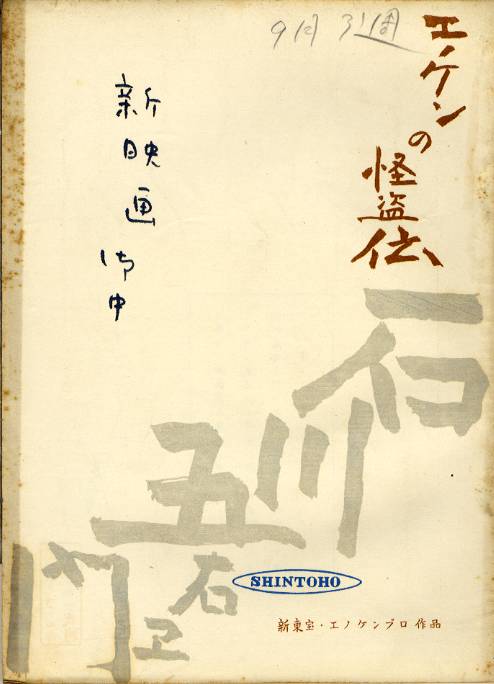 9月 3週
エノケンの
怪盗伝
石川五右ヱ門
新映画御中
SHINTOHO
新東宝・エノケンプロ作品